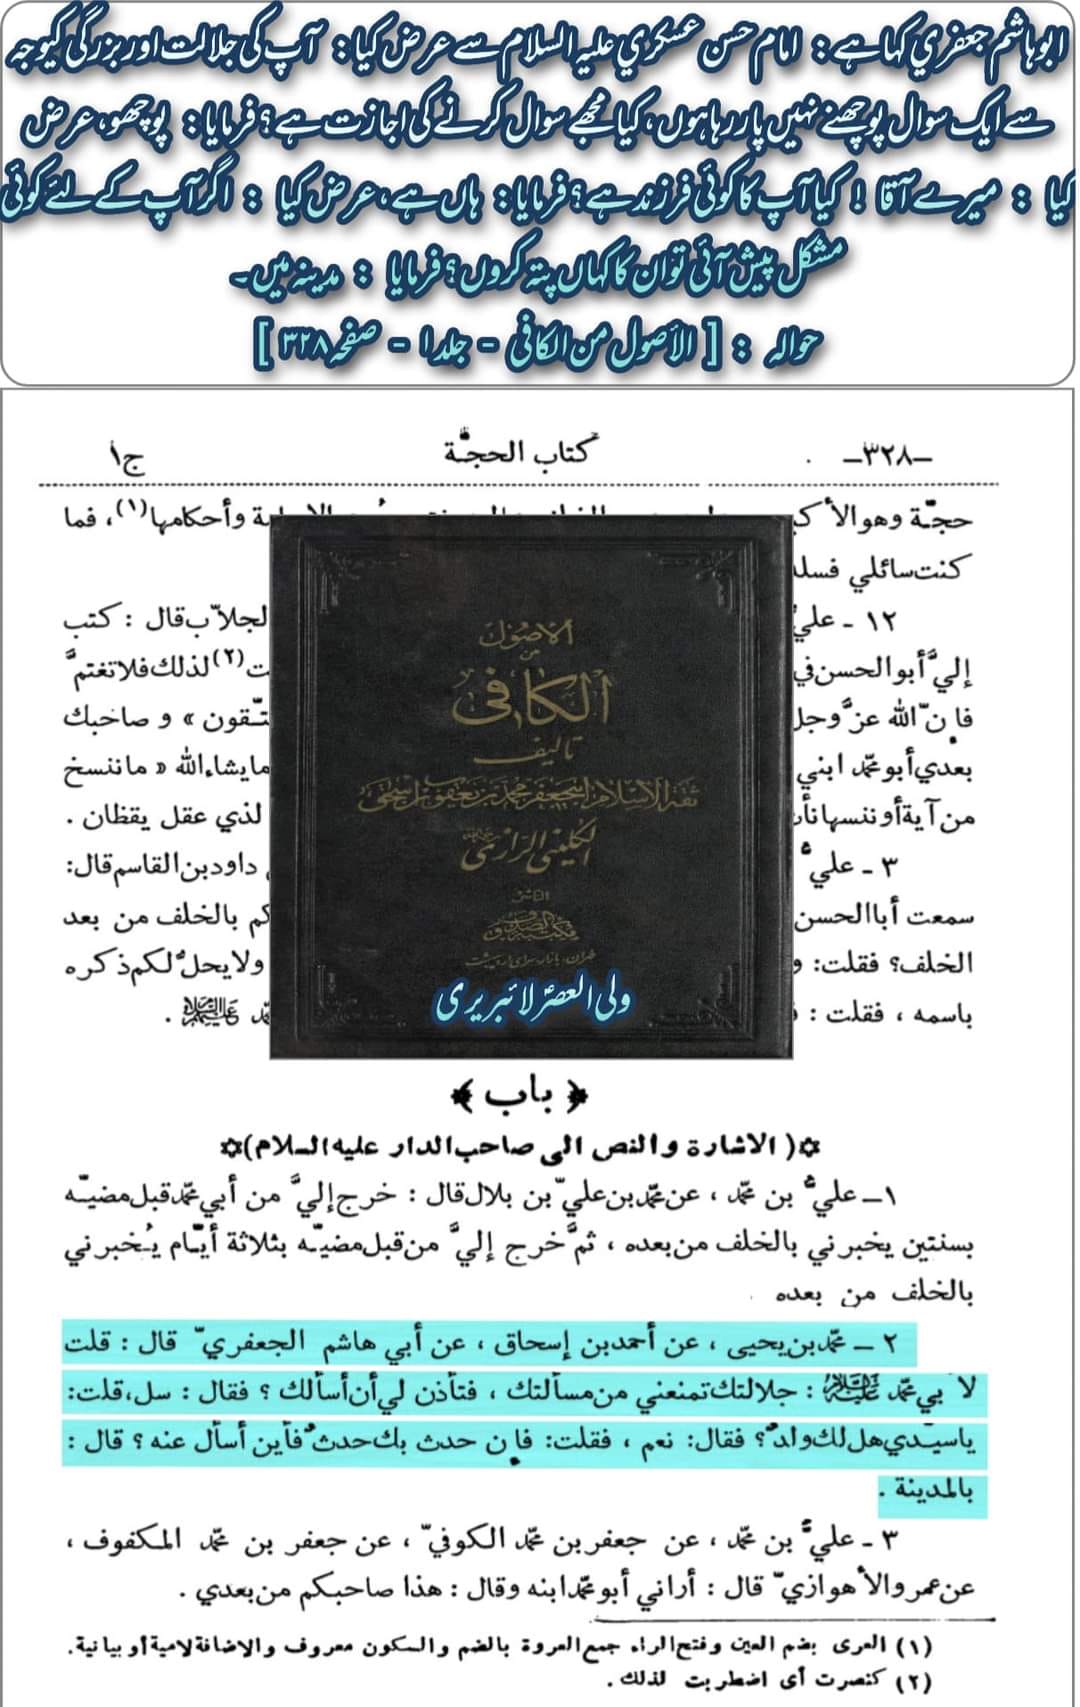 ابوہاشم جعفري کہا ہے : امام حسن عسكري علیہ السلام سے عرض کیا : آپ کی جلالت اور بزرگی کیوجہ
سے ایک سوال پوچھنے نہیں پار رہا ہوں، کیا مجھے سوال کرنے کی اجازت ہے؟ فرمایا : پوچھو، عرض
کیا : میرے آقا ! کیا آپ کا کوئی فرزند ہے؟ فرمایا : ہاں ہے، عرض کیا : اگر آپ کے لئے کوئی
مشکل پیش آئی تو ان کا کہاں پتہ کروں؟ فرمایا : مدینہ میں۔
حوالہ : [ الأصول من الکافی - جلد ۱ - صفحہ ۳۲۸ ]
ـ٣٢٨ـ كتاب الحجّة ج١
حجّة وهو الأ وأحكامها(١)، فما
كنت سائلي فسلـ
١٢ ـ عليّ الجلاّب قال : كتب
إليَّ أبو الحسن في ت(٢) لذلك فلا تغتمَّ
فإنّ الله عزَّ وجل تّقون » و صاحبك
بعدي أبو محمّد ابني ما يشاء الله « ما ننسخ
من آية أو ننسها نأت لذي عقل يقظان .
٣ ـ عليّ داود بن القاسم قال:
سمعت أبا الحسن كم بالخلف من بعد
الخلف؟ فقلت: و ولا يحلُّ لكم ذكره
باسمه ، فقلت : عليهم السلام .
الاصول
من
الكافي
تأليف
ثقة الاسلام ابي جعفر محمد بن يعقوب بن اسحق
الكليني الرازي
الناشر
مكتبة الصدوق
طهران، بازار سرای اردیبهشت
ولی العصرؑ لائبریری
﴿ باب ﴾
✡( الاشارة والنص الى صاحب الدار عليه السلام)✡
١ـ عليُّ بن محمّد ، عن محمّد بن عليّ بن بلال قال : خرج إليَّ من أبي محمّد قبل مضيّه
بسنتين يخبرني بالخلف من بعده ، ثمَّ خرج إليَّ من قبل مضيّه بثلاثة أيّام يُخبرني
بالخلف من بعده .
٢ ـ محمّد بن يحيى ، عن أحمد بن إسحاق ، عن أبي هاشم الجعفريّ قال : قلت
لأبي محمّد عليه السلام : جلالتك تمنعني من مسألتك ، فتأذن لي أن أسألك ؟ فقال : سل، قلت:
يا سيّدي هل لك ولدٌ؟ فقال: نعم ، فقلت: فإن حدث بك حدثٌ فأين أسأل عنه ؟ قال :
بالمدينة .
٣ ـ عليُّ بن محمّد ، عن جعفر بن محمّد الكوفيّ ، عن جعفر بن محمّد المكفوف ،
عن عمرو الأهوازيّ قال : أراني أبو محمّد ابنه وقال : هذا صاحبكم من بعدي .
(١) العرى بضم العين وفتح الراء جمع العروة بالضم والسكون معروف والاضافة لامية أو بيانية.
(٢) كنصرت أى اضطربت لذلك .